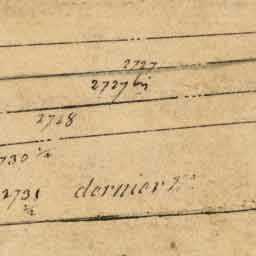 2727
2727 bis
2728
2730 ½
2731 dernier n.o
½